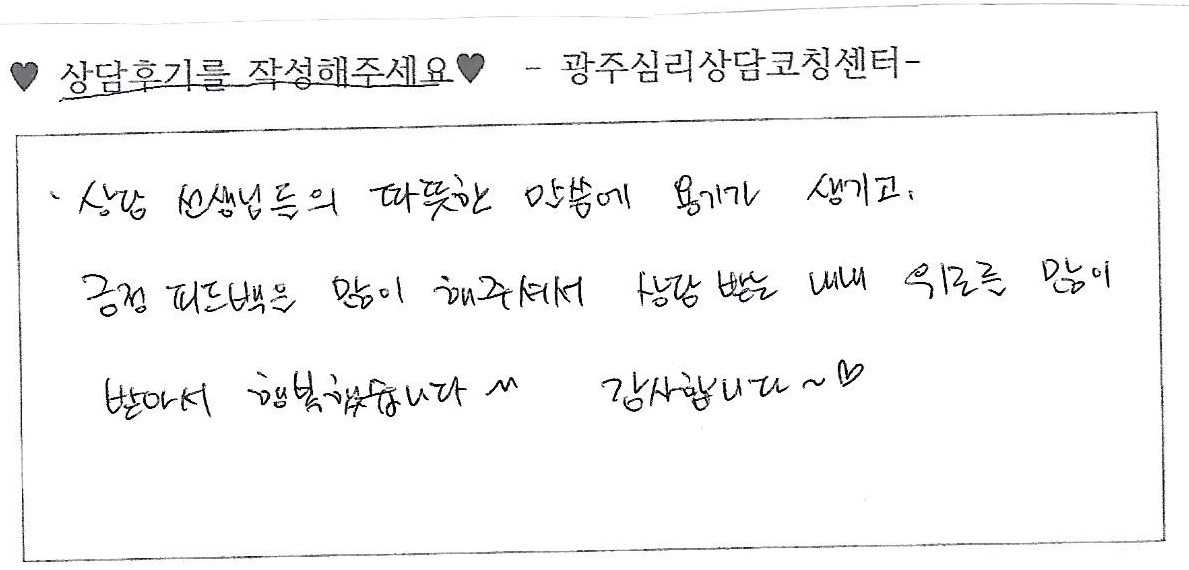 ♥ 상담후기를 작성해주세요♥ - 광주심리상담코칭센터-
· 상담 선생님들의 따뜻한 말씀에 용기가 생기고,
긍정 피드백을 많이 해주셔서 상담 받는 내내 위로를 많이
받아서 행복했습니다 ^^ 감사합니다~♡